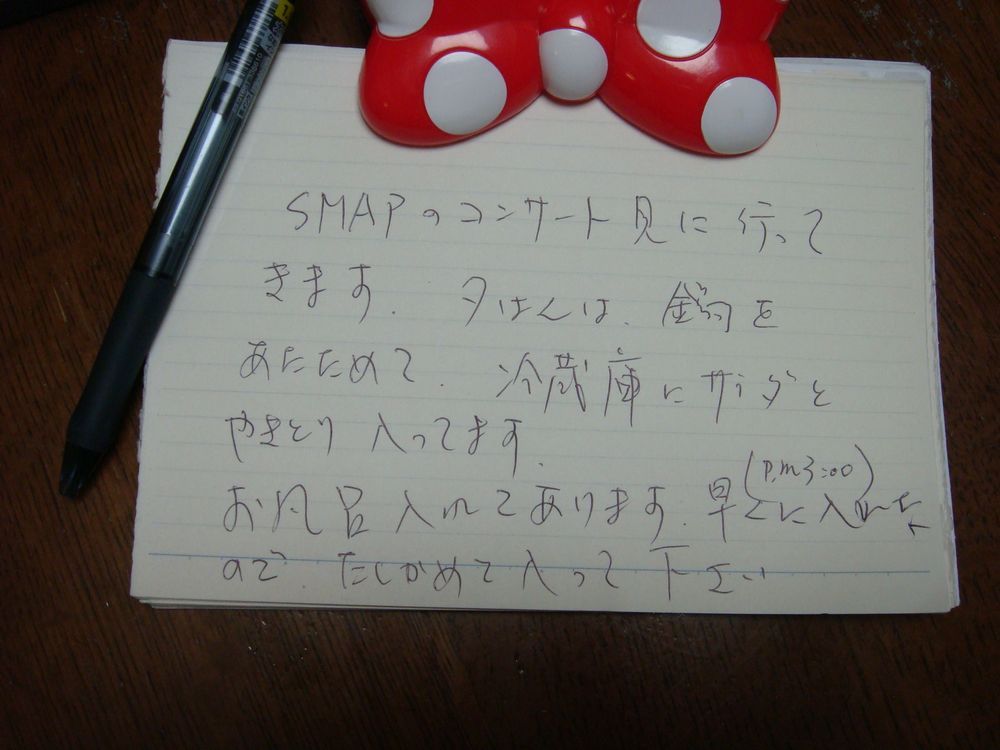 SMAPのコンサート見に行って
きます. 夕はんは、鍋を
あたためて. 冷蔵庫にサラダと
やきとり入ってます.
(P.m3:00)
お風呂入れてあります. 早くに入れた
ので. たしかめて入って下さい